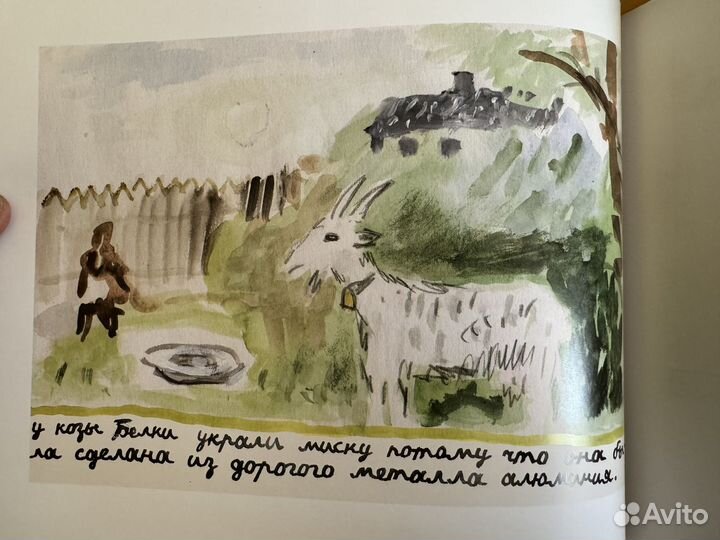 у козы Белки украли миску потому что она бы
ла сделана из дорогого металла алюминия.
Avito